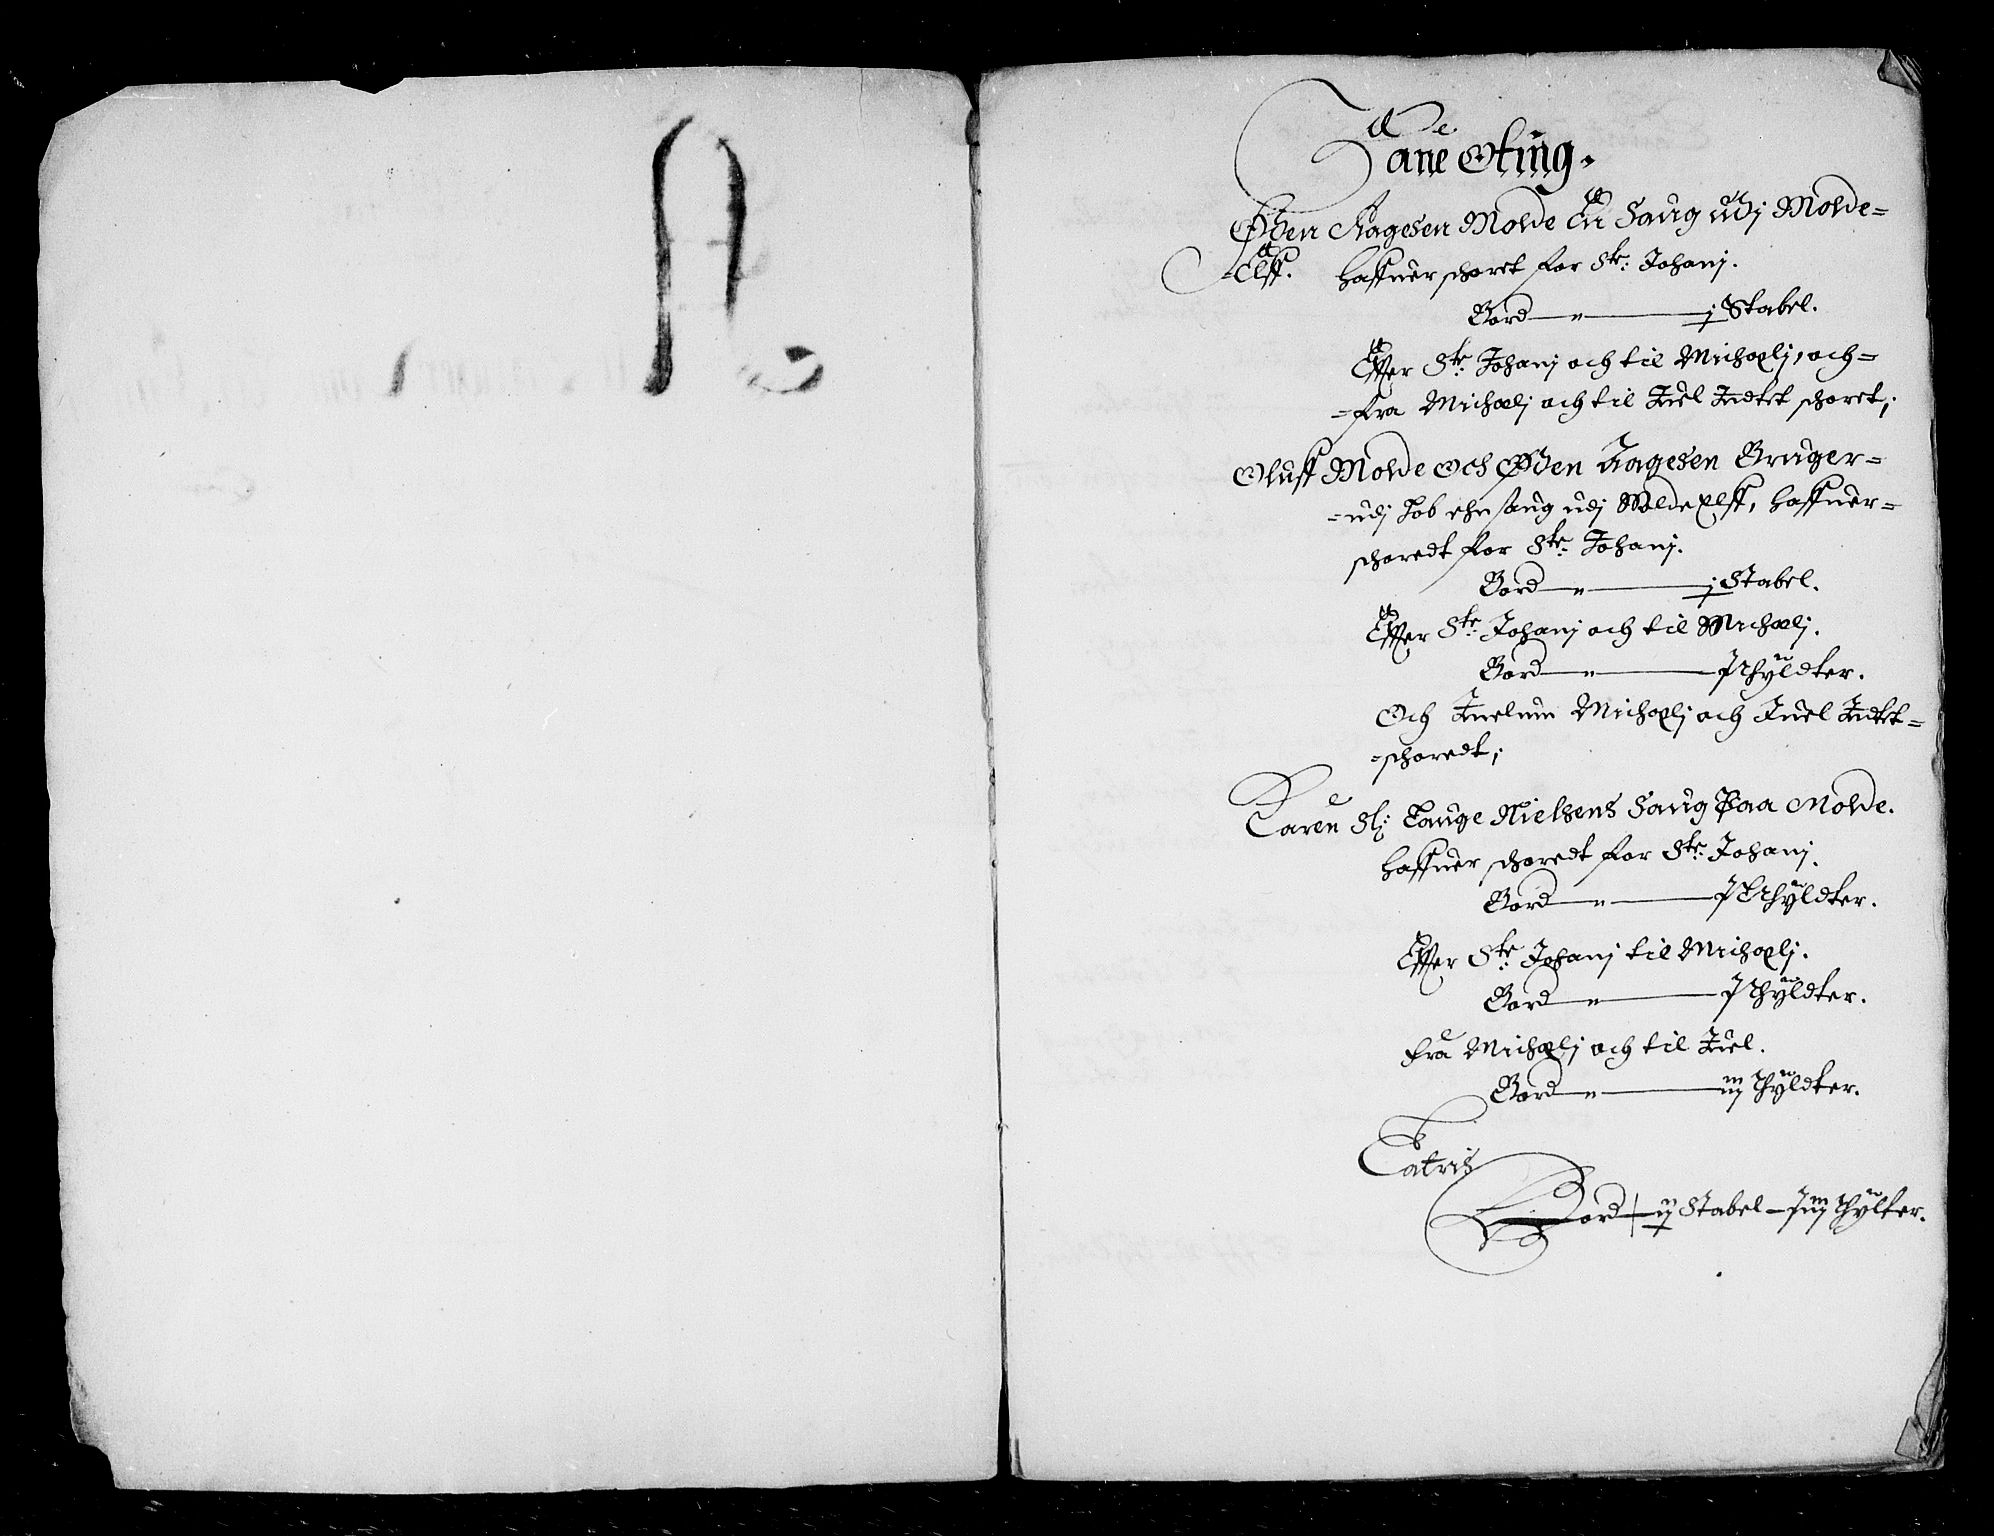 Fane Oting.
Østen Aagesen Molde En Saug udj Molde=
=Elff. haffuer schoret for Ste: Johanj.
Bord — " — j Stabel.
Effter Ste: Johanj och til Michaelj, och=
=fra Michaelj och til Juel Indtet schoret;
Oluff Molde Och Østen Aagesen Bruger=
=udj Lob ehn saug udj Molde Elff, haffuer=
schoredt for Ste: Johanj.
Bord — " — j Stabel.
Effter Ste: Johanj och til Michaelj.
Bord — " — Thyldter.
Och Imelum Michaelj och Juel Indtet=
=schoredt;
Karen Sl: Lauge Nielsens Saug Paa Molde.
haffuer schoredt for Ste: Johanj.
Bord — " — Thyldter.
Effter Ste: Johanj til Michaelj.
Bord — " — Thyldter.
Fra Michaelj och til Juel.
Bord — " — iiij Thyldter.
Latris
Bord — ij Stabel — Thylter.